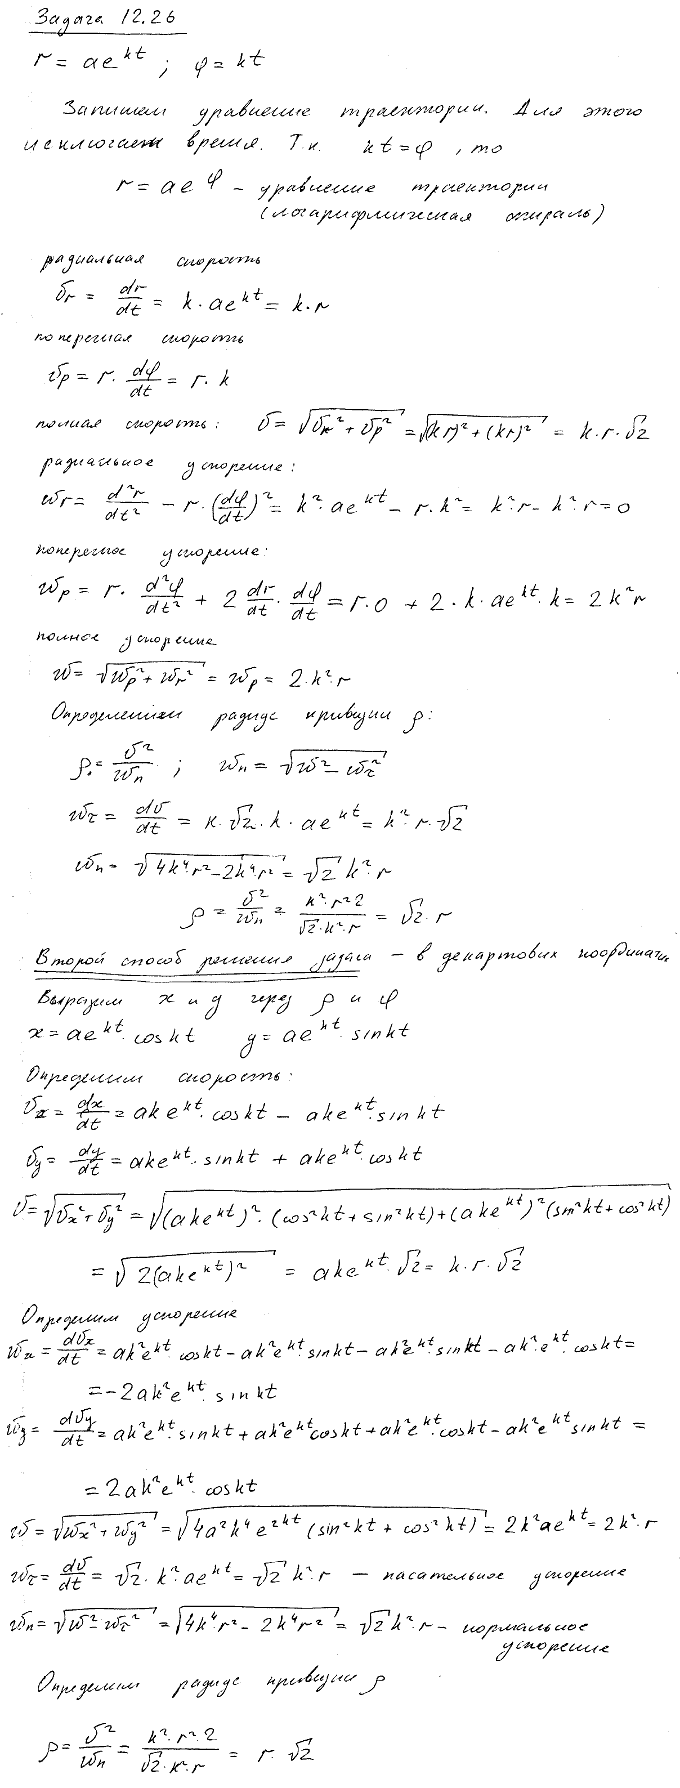 Задача 12.26
r = ae^{kt} ; φ = kt
Запишем уравнение траектории. Для этого
исключаем время. Т.к. kt = φ , то
r = ae^{φ} – уравнение траектории
(логарифмическая спираль)
радиальная скорость
v_r = dr/dt = k·ae^{kt} = k·r
поперечная скорость
v_p = r·dφ/dt = r·k
полная скорость: v = √(v_r² + v_p²) = √((kr)² + (kr)²) = k·r·√2
радиальное ускорение:
w_r = d²r/dt² − r·(dφ/dt)² = k²·ae^{kt} − r·k² = k²·r − k²·r = 0
поперечное ускорение:
w_p = r·d²φ/dt² + 2 dr/dt·dφ/dt = r·0 + 2·k·ae^{kt}·k = 2k²r
полное ускорение
w = √(w_p² + w_r²) = w_p = 2·k²·r
Определим радиус кривизны ρ:
ρ = v²/w_n ; w_n = √(w² − w_τ²)
w_τ = dv/dt = k·√2·k·ae^{kt} = k²·r·√2
w_n = √(4k⁴·r² − 2k⁴·r²) = √2 k²·r
ρ = v²/w_n = k²·r²·2/√2·k²·r = √2·r
Второй способ решения задачи – в декартовых координатах
Выразим x и y через ρ и φ
x = ae^{kt}·cos kt y = ae^{kt}·sin kt
Определим скорость:
v_x = dx/dt = ake^{kt}·cos kt − ake^{kt}·sin kt
v_y = dy/dt = ake^{kt}·sin kt + ake^{kt}·cos kt
v = √(v_x² + v_y²) = √((ake^{kt})²·(cos²kt + sin²kt) + (ake^{kt})²(sin²kt + cos²kt))
= √(2(ake^{kt})²) = ake^{kt}·√2 = k·r·√2
Определим ускорение
w_x = dv_x/dt = ak²e^{kt}·cos kt − ak²e^{kt}·sin kt − ak²e^{kt}·sin kt − ak²·e^{kt}·cos kt =
= −2ak²e^{kt}·sin kt
w_y = dv_y/dt = ak²e^{kt}·sin kt + ak²e^{kt}cos kt + ak²e^{kt}·cos kt − ak²e^{kt} sin kt =
= 2ak²e^{kt}·cos kt
w = √(w_x² + w_y²) = √(4a²k⁴e^{2kt}(sin²kt + cos²kt)) = 2k²ae^{kt} = 2k²·r
w_τ = dv/dt = √2·k²·ae^{kt} = √2 k²·r – касательное ускорение
w_n = √(w² − w_τ²) = √(4k⁴·r² − 2k⁴r²) = √2 k²·r – нормальное
ускорение
Определим радиус кривизны ρ
ρ = v²/w_n = k²·r²·2/√2·k²·r = r·√2